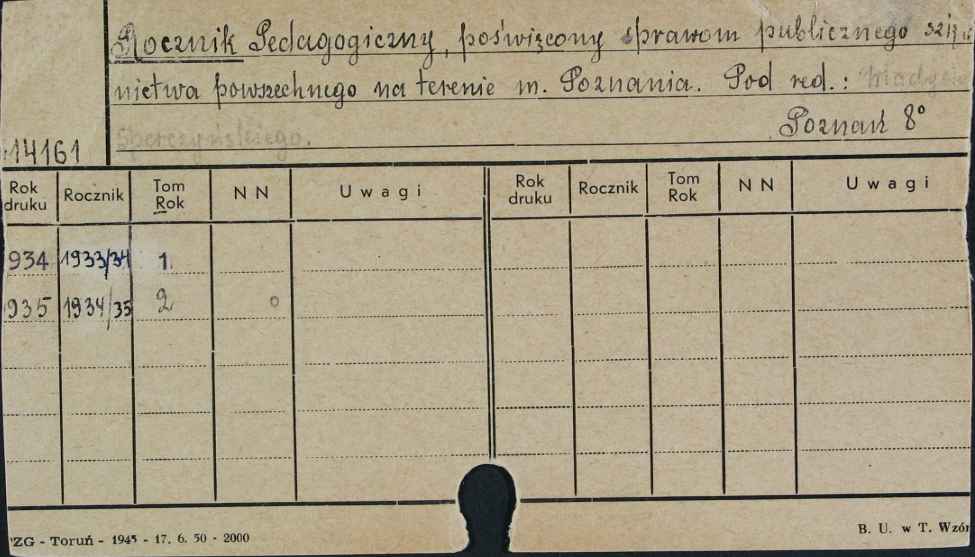 Rocznik Pedagogiczny, poświęcony sprawom publicznego szk
nictwa powszechnego na terenie m. Poznania. Pod red.: Władysł
Sperczyńskiego.
Poznań 8°
14161
Rok druku Rocznik Tom Rok N N Uwagi Rok druku Rocznik Tom Rok N N Uwagi
934 1933/34 1
935 1934/35 2
ZG - Toruń - 1945 - 17. 6. 50 - 2000
B. U. w T. Wzór